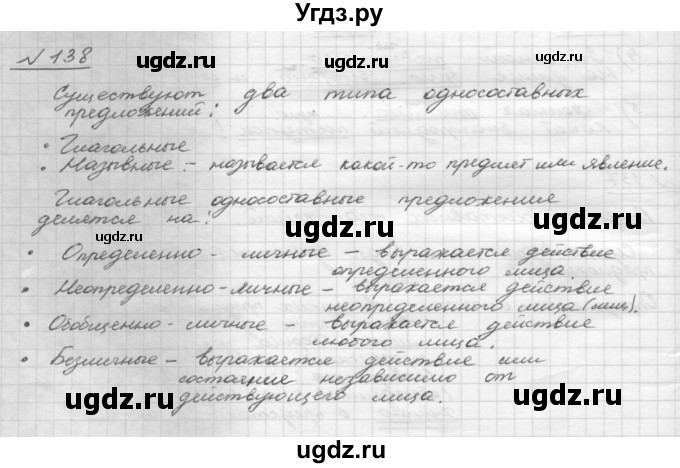 Угдз.ру
№ 138
Существуют два типа односоставных
предложений:
• Глагольные
• Назывные: - называется какой-то предмет или явление.
Глагольные односоставные предложения
делятся на:
• Определенно-личные – выражается действие
определенного лица.
• Неопределенно-личные – выражается действие
неопределенного лица (лиц).
• Обобщенно-личные – выражается действие
любого лица.
• Безличные – выражается действие или
состояние независимо от
действующего лица.
ugdz.ru ugdz.ru ugdz.ru
ugdz.ru ugdz.ru
ugdz.ru ugdz.ru ugdz.ru
ugdz.ru ugdz.ru
ugdz.ru ugdz.ru ugdz.ru
Угдз.ру